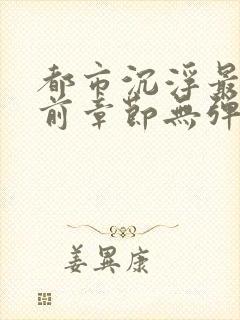 都市沉浮最
前章節無彈
姜異康